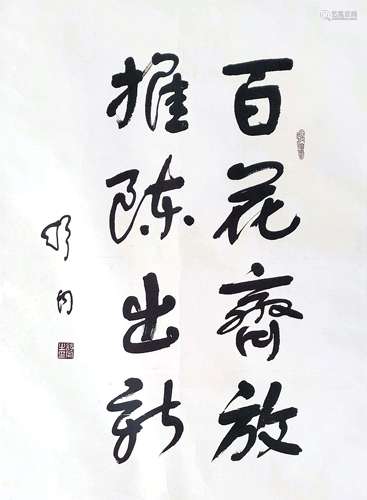 百花齊放
推陈出新
舒同